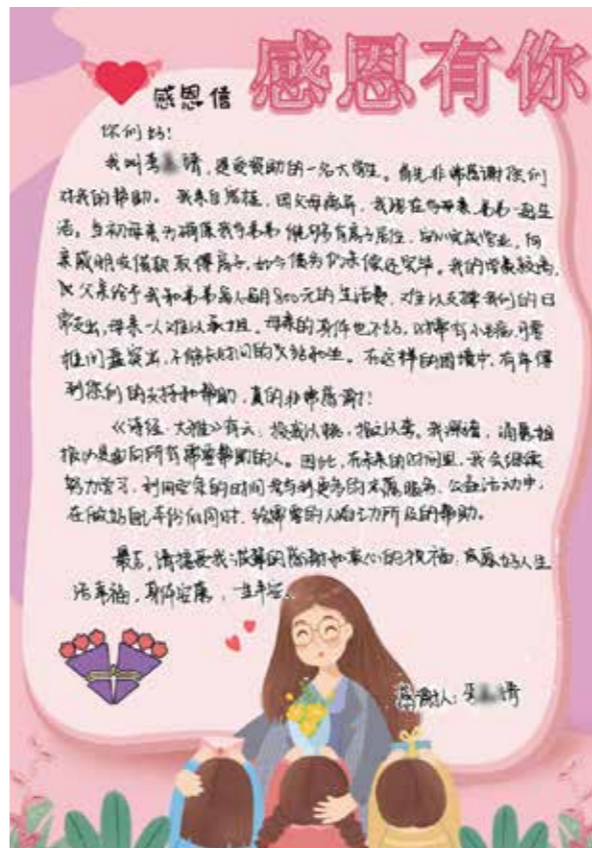 感恩有你
感恩信
你们好！
我叫李 婧，是受资助的一名大学生。首先非常感谢你们
对我的帮助。我来自 ，因父母离异，我现在与母亲、弟弟一起生
活。当初母亲为确保我与弟弟能够有房子居住，安心完成学业，向
亲戚朋友借款取得房子，如今债务仍未偿还完毕。我们的学费较高，
父亲给予我和弟弟每人每月800元的生活费，难以支撑我们的日
常支出，母亲一人难以承担。母亲的身体也不好，时常有小毛病，
椎间盘突出，不能长时间的久站和坐。在这样的困境中，有幸得
到你们的支持和帮助，真的非常感谢！
《诗经·大雅》有云：投我以桃，报之以李。我深谙，涌泉相
报 是面向所有需要帮助的人。因此，在未来的时间里，我会继续
努力学习，利用空余的时间参与到更多的 服务、公益活动中，
在做好自己 的同时，给需要的人自己力所能及的帮助。
最后，请接受我诚挚的感谢和衷心的祝福，祝愿好人生
活幸福，身体安康，一生平安。
感谢人：李 婧